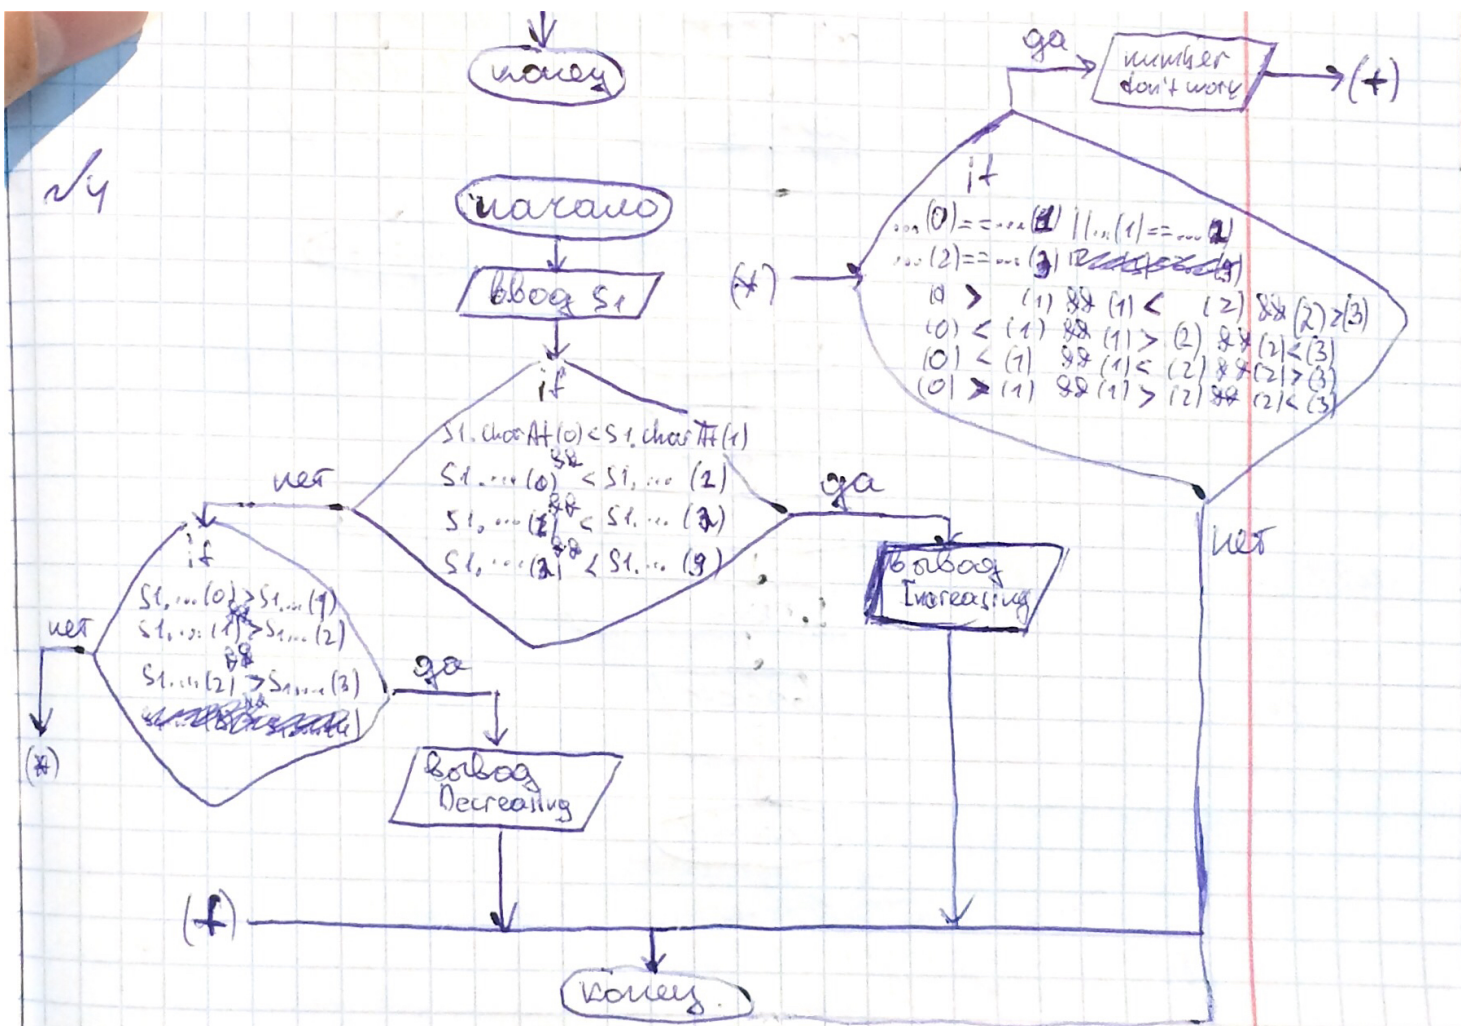 конец
да
number
don't work
(+)
√4
начало
ввод S1
if
S1.charAt(0)<S1.charAt(1)
&&
S1....(0) < S1.... (2)
&&
&&
нет
да
вывод
Increasing
if
S1....(0)>S1....(1)
&&
S1....(1)>S1....(2)
&&
S1....(2)>S1....(3)
&&
нет
(*)
да
вывод
Decreasing
(+)
конец
(*)
if
...(0)==...(1) ||...(1)==...(2)
...(2)==...(3)
(0 > (1) && (1) < (2) && (2)>(3)
(0) < (1) && (1) > (2) && (2)<(3)
(0) < (1) && (1)< (2) && (2)>(3)
(0) > (1) && (1) > (2) && (2)< (3)
нет